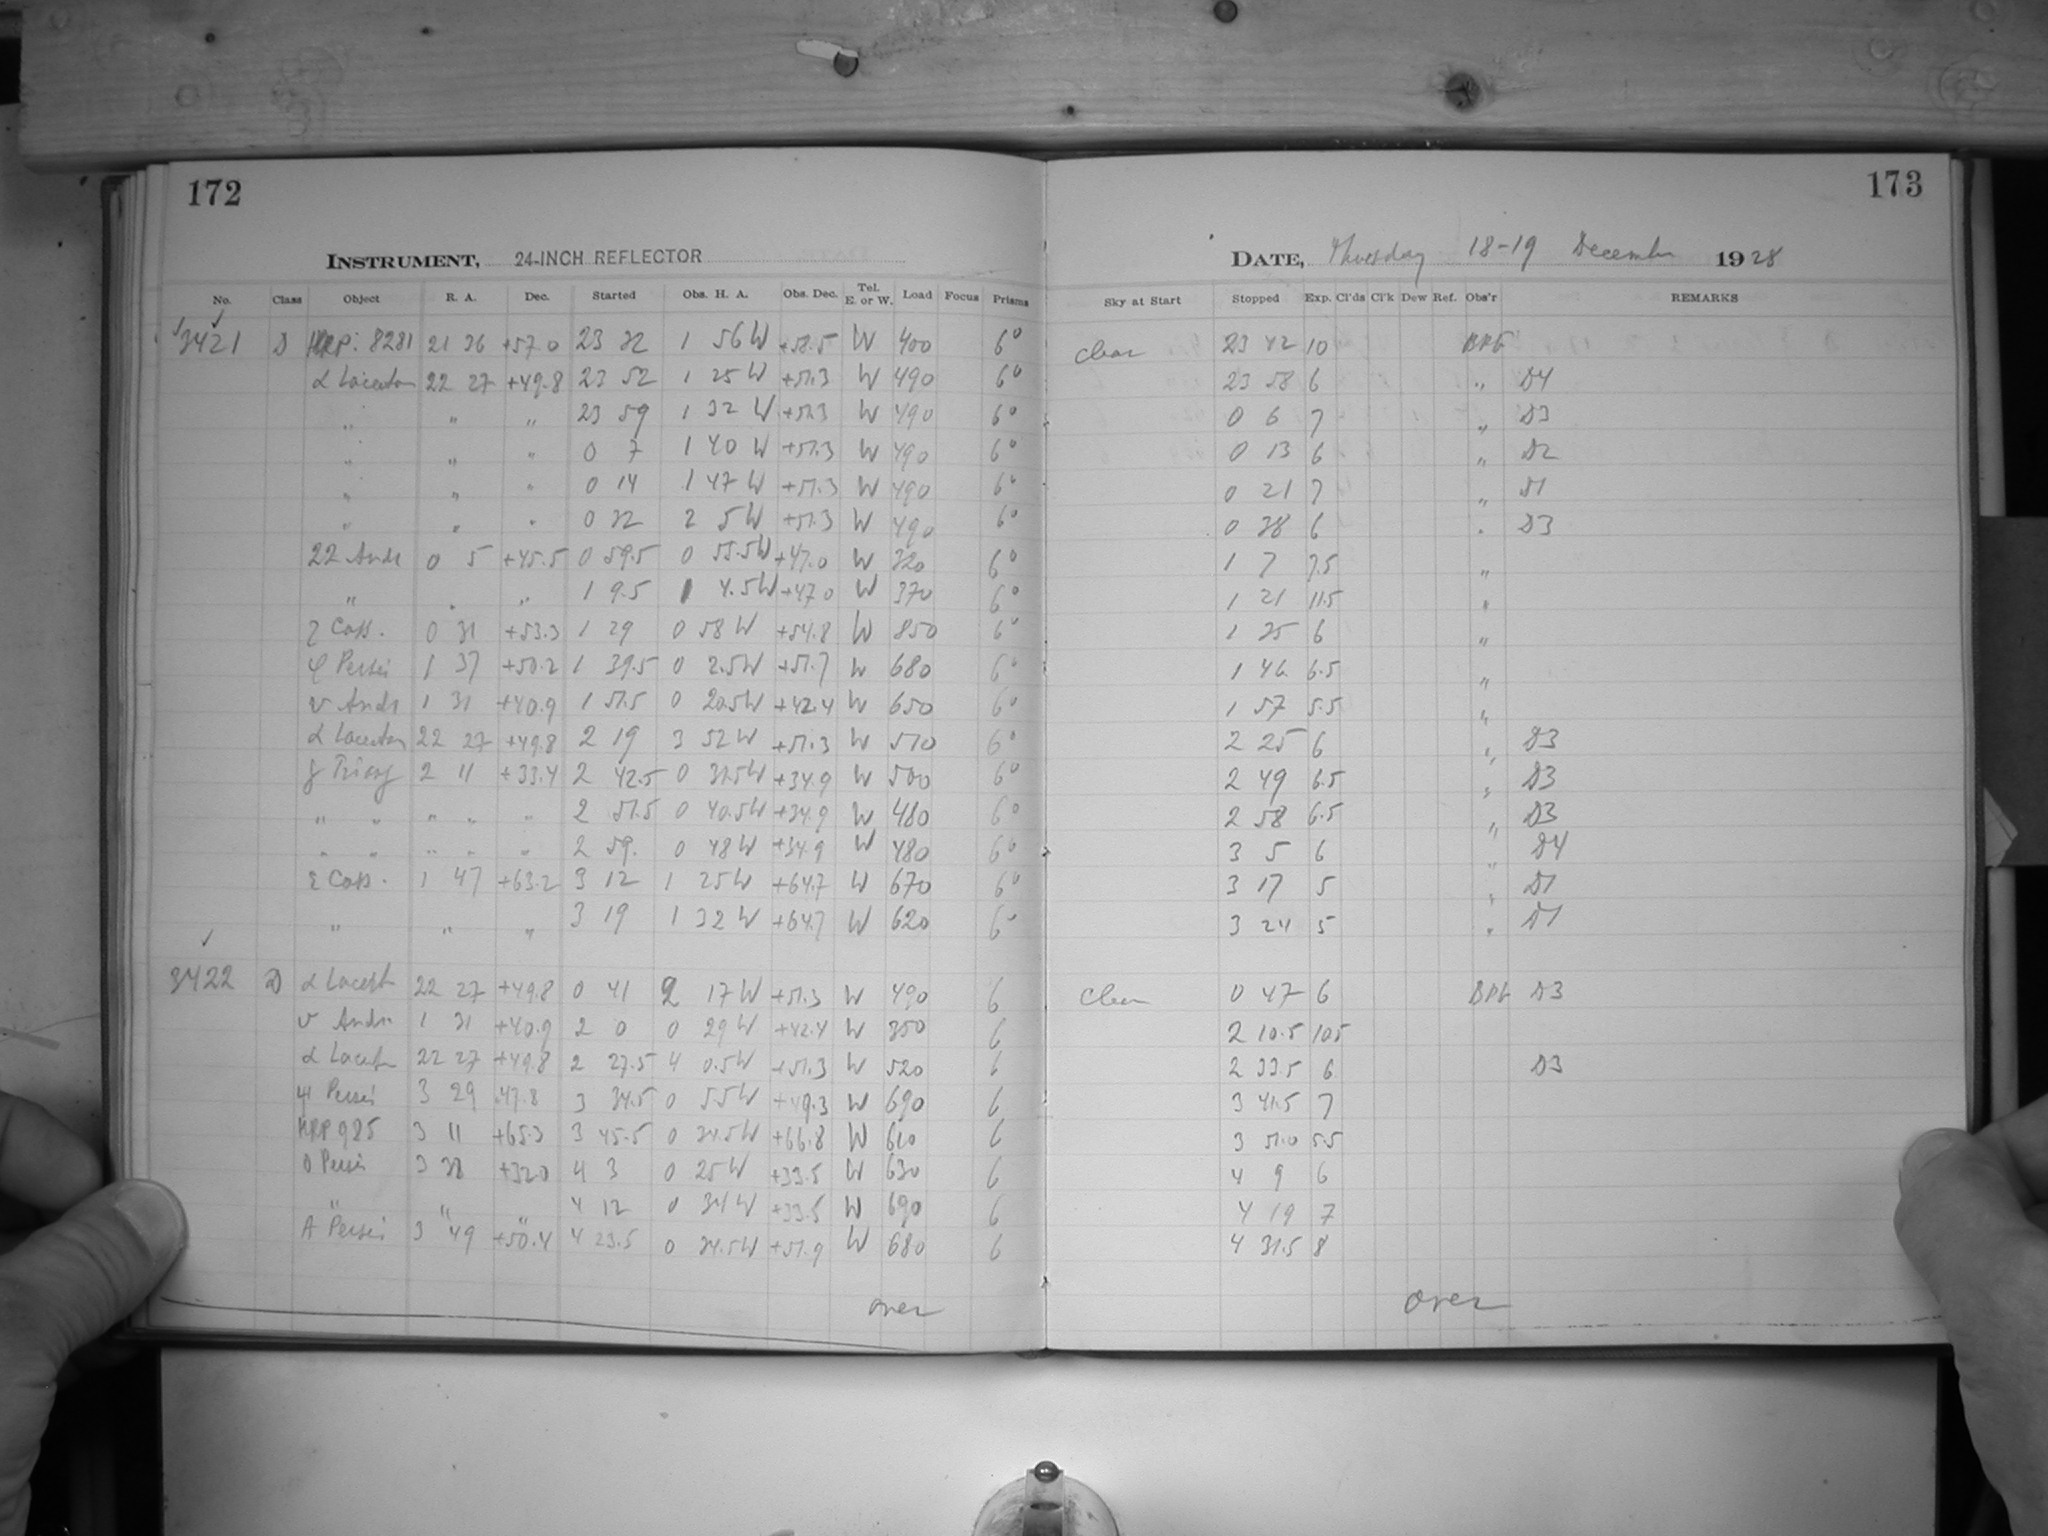 172
173
INSTRUMENT, 24-INCH REFLECTOR
DATE, Thursday 18-19 December 1928
No. Class Object R. A. Dec. Started Obs. H. A. Obs. Dec. Tel. E. or W. Load Focus Prisms Sky at Start Stopped Exp. Cl'ds Cl'k Dew Ref. Obs'r REMARKS
3421 D HRP. 8281 21 36 +57.0 23 32 1 56 W +58.5 W 400 6° clear 23 42 10
α Lacertae 22 27 +49.8 23 52 1 25 W +51.3 W 490 6° 23 58 6 " D4
" " " 23 59 1 32 W +51.3 W 490 6° 0 6 7 " D3
" " " 0 7 1 40 W +51.3 W 490 6° 0 13 6 " D2
" " " 0 14 1 47 W +51.3 W 490 6° 0 21 7 " D1
" " " 0 32 2 5 W +51.3 W 490 6° 0 38 6 " D3
22 Andr 0 5 +45.5 0 59.5 0 55.5 W +47.0 W 320 6° 1 7 7.5 "
" " " 1 9.5 1 4.5 W +47.0 W 370 6° 1 21 11.5 "
ζ Cass. 0 31 +53.3 1 29 0 58 W +54.8 W 850 6° 1 35 6 "
φ Persei 1 37 +50.2 1 39.5 0 2.5 W +51.7 W 680 6° 1 46 6.5 "
υ Andr 1 31 +40.9 1 51.5 0 20.5 W +42.4 W 650 6° 1 57 5.5 "
α Lacertae 22 27 +49.8 2 19 3 52 W +51.3 W 510 6° 2 25 6 " D3
γ Triang 2 11 +33.4 2 42.5 0 31.5 W +34.9 W 500 6° 2 49 6.5 " D3
" " " " " 2 51.5 0 40.5 W +34.9 W 480 6° 2 58 6.5 " D3
" " " " " 2 59. 0 48 W +34.9 W 480 6° 3 5 6 " D4
ε Cass. 1 47 +63.2 3 12 1 25 W +64.7 W 670 6° 3 17 5 " D1
" " " 3 19 1 32 W +64.7 W 620 6° 3 24 5 " D1
3422 D α Lacert 22 27 +49.8 0 41 2 17 W +51.3 W 490 6 Clear 0 47 6 D3
υ Andr 1 31 +40.9 2 0 0 29 W +42.4 W 350 6 2 10.5 10.5
α Lacert 22 27 +49.8 2 27.5 4 0.5 W +51.3 W 520 6 2 33.5 6 D3
ψ Persei 3 29 47.8 3 34.5 0 5.5 W +49.3 W 690 6 3 41.5 7
HRP 985 3 11 +65.3 3 45.5 0 34.5 W +66.8 W 610 6 3 51.0 5.5
o Persei 3 38 +32.0 4 3 0 25 W +33.5 W 630 6 4 9 6
" " " 4 12 0 34 W +33.5 W 690 6 4 19 7
A Persei 3 49 +50.4 4 23.5 0 34.5 W +51.9 W 680 6 4 31.5 8
over
over